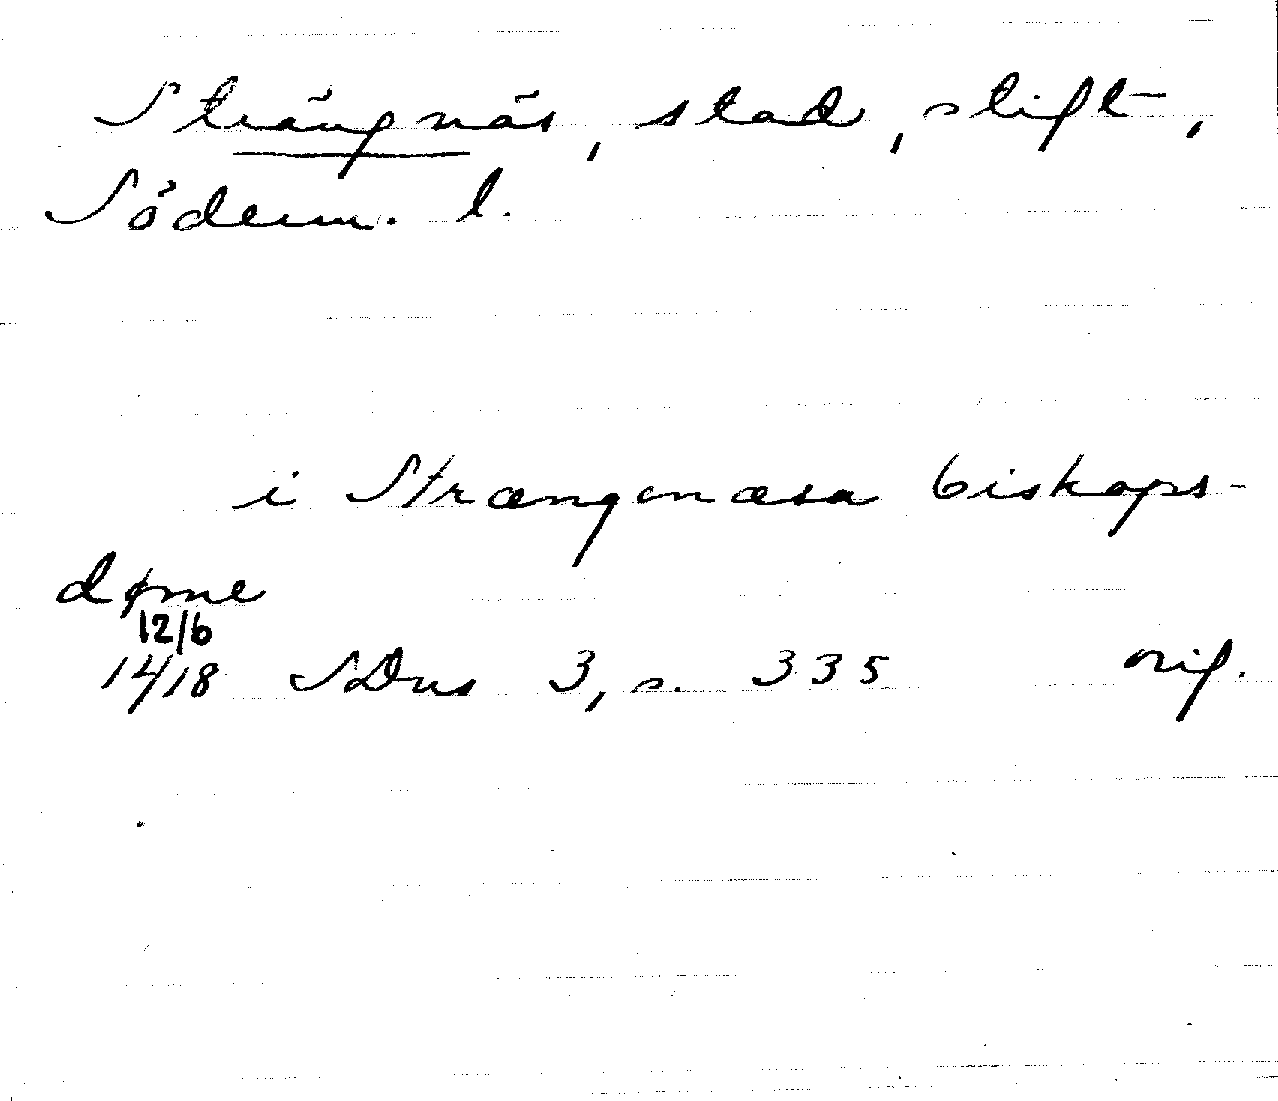 Strängnäs, stad, stift,
Söderm. l.
i Strængenæsa biskops-
døme
12/6
1418 SDns 3, s. 335 orig.